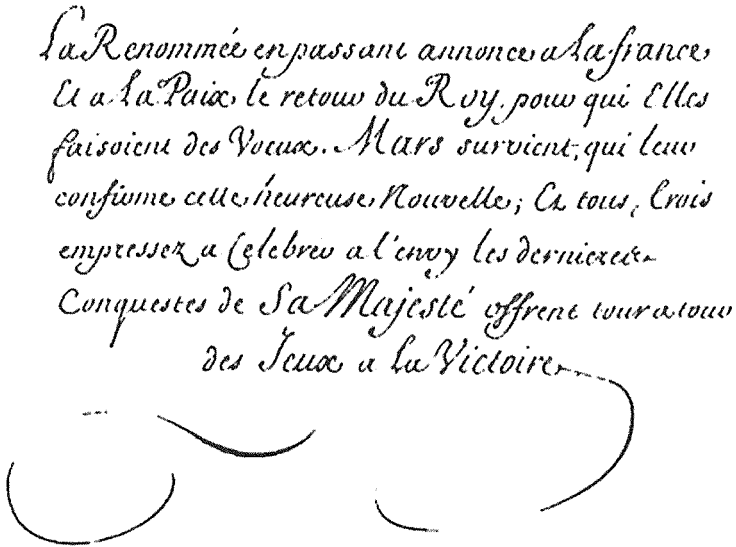 La Renommée en passant annonce a La france
Et a La Paix le retour du Roy, pour qui Elles
faisoient des Voeux. Mars survient, qui leur
confirme cette heureuse Nouvelle; Et tous, trois
empressez a Celebrer a l'envy les dernieres
Conquestes de Sa Majesté offrent tour a tour
des Jeux a La Victoire